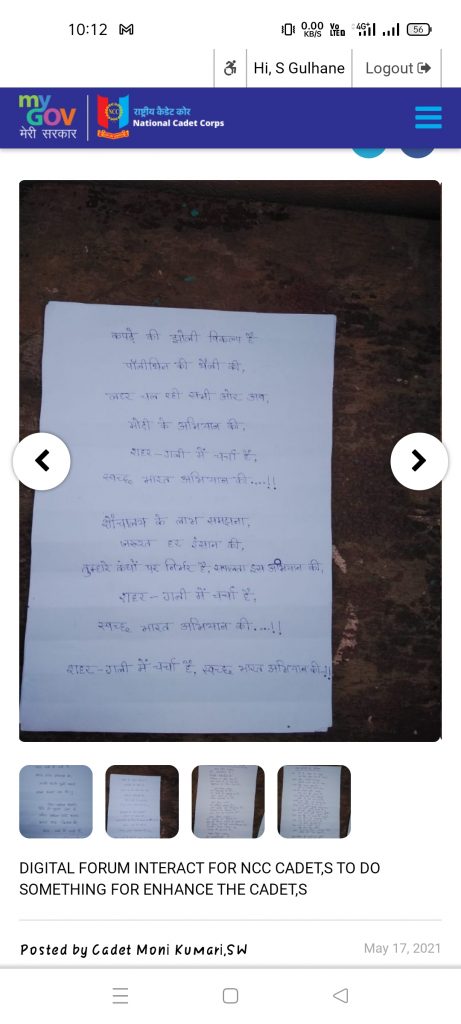 10:12
0.00 KB/S
Vo LTED
4G+
56
Hi, S Gulhane
Logout
my GOV
मेरी सरकार
NCC
राष्ट्रीय कैडेट कोर
National Cadet Corps
कपड़े की झोली विकल्प है
पॉलीथिन की थैली की,
लहर चल रही सभी ओर अब,
मोदी के अभियान की,
शहर-गली में चर्चा है,
स्वच्छ भारत अभियान की....!!
शौचालय के लाभ समझना,
जरूरत हर इंसान की,
तुम्हारे कंधों पर निर्भर है, सफलता इस अभियान की,
शहर-गली में चर्चा है,
स्वच्छ भारत अभियान की....!!
शहर-गली में चर्चा है, स्वच्छ भारत अभियान की..!!
DIGITAL FORUM INTERACT FOR NCC CADET,S TO DO
SOMETHING FOR ENHANCE THE CADET,S
Posted by Cadet Moni Kumari,SW
May 17, 2021